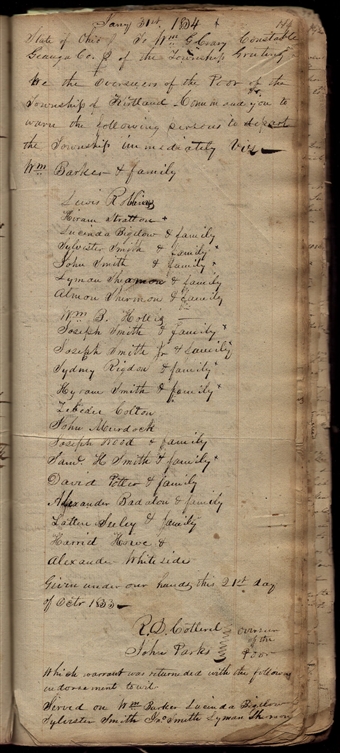 Jany 31st 1834
State of Ohio } To Wm G Crary Constable
Geauga Co. } of the Township Greeting
We the overseers of the Poor of the
Township of Kirtland Command you to
warn the following persons to depart
the Township immediately Viz
Wm Barker & family
Lewis Robbins
Hiram Stratton +
Lucinda Bigelow & family
Sylvester Smith & family +
John Smith & family +
Lyman Sherman & family
Almon Sherman & family
Wm B. Hollis
Joseph Smith & family +
Joseph Smith Jr & family
Sydney Rigdon & family +
Hyrum Smith & family +
Zebedee Colton
John Murdock
Joseph Wood & family
Saml. H Smith & family +
David Potter & family
Alexander Badalon & family
Latten Seeley & family
Harrid Howe &
Alexander Whiteside
Given under our hands this 21st day
of Octr 1833
R. D. Cottrell
overseer
of the
John Parks
Poor
Which warrant was returned with the following
endorsement to wit
Served on Wm Barker Lucinda Bigelow
Sylvester Smith Jno Smith Lyman Sherman